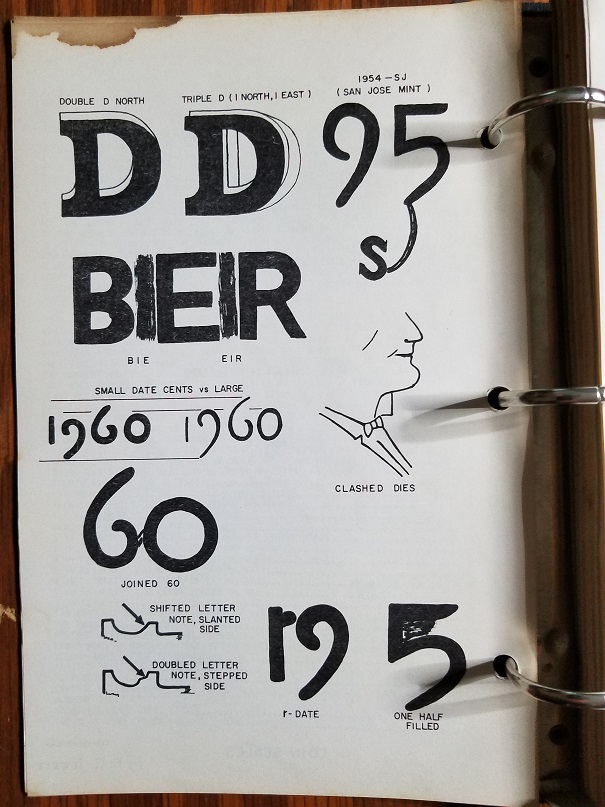 DOUBLE D NORTH
TRIPLE D (1 NORTH, 1 EAST)
1954 - SJ
(SAN JOSE MINT)
D D 95
SJ
BIEIR
BIE EIR
SMALL DATE CENTS vs LARGE
1960 1960
CLASHED DIES
60
JOINED 60
SHIFTED LETTER
NOTE, SLANTED
SIDE
DOUBLED LETTER
NOTE, STEPPED
SIDE
r9 5
r-DATE
ONE HALF
FILLED